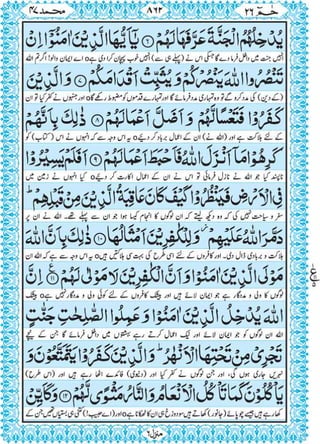 محمد ۴۷ ۸۶۲ حٰمٓ ۲۶
يُدْخِلُهُمُ الْجَنَّةَ عَرَّفَهَا لَهُمْ ۝۶ يٰۤاَيُّهَا الَّذِيْنَ اٰمَنُوْۤا اِنْ
اے ایمان والو! اگر تم اللہ
تَنْصُرُوا اللّٰهَ يَنْصُرْكُمْ وَيُثَبِّتْ اَقْدَامَكُمْ ۝۷ وَالَّذِيْنَ
(کے دین) کی مدد کرو گے تو وہ تمہاری مدد فرمائے گا اور تمہارے قدموں کو مضبوط رکھے گا اور جنہوں نے کفر کیا تو ان
كَفَرُوْا فَتَعْسًا لَّهُمْ وَاَضَلَّ اَعْمَالَهُمْ ۝۸ ذٰلِكَ بِاَنَّهُمْ
کے لئے ہلاکت ہے اور (اللہ نے) ان کے اعمال برباد کر دیئے یہ اس وجہ سے کہ انہوں نے اس (کتاب) کو
كَرِهُوْا مَاۤ اَنْزَلَ اللّٰهُ فَاَحْبَطَ اَعْمَالَهُمْ ۝۹ اَفَلَمْ يَسِيْرُوْا
ناپسند کیا جو اللہ نے نازل فرمائی تو اس نے ان کے اعمال اکارت کر دیئے کیا انہوں نے زمین میں
فِي الْاَرْضِ فَيَنْظُرُوْا كَيْفَ كَانَ عَاقِبَةُ الَّذِيْنَ مِنْ قَبْلِهِمْ
سفر و سیاحت نہیں کی کہ وہ دیکھ لیتے کہ ان لوگوں کا انجام کیسا ہوا جو ان سے پہلے تھے اللہ نے ان پر
دَمَّرَ اللّٰهُ عَلَيْهِمْ وَلِلْكٰفِرِيْنَ اَمْثَالُهَا ۝۱۰ ذٰلِكَ بِاَنَّ اللّٰهَ
ہلاکت و بربادی ڈال دی اور کافروں کے لئے اسی طرح کی بہت سی ہلاکتیں ہیں یہ اس وجہ سے ہے کہ اللہ ان
مَوْلَى الَّذِيْنَ اٰمَنُوْا وَاَنَّ الْكٰفِرِيْنَ لَا مَوْلٰى لَهُمْ ۝۱۱ اِنَّ
لوگوں کا ولی و مددگار ہے جو ایمان لائے ہیں اور بیشک کافروں کے لئے کوئی ولی و مددگار نہیں ہے بیشک
اللّٰهَ يُدْخِلُ الَّذِيْنَ اٰمَنُوْا وَعَمِلُوا الصّٰلِحٰتِ جَنّٰتٍ
اللہ ان لوگوں کو جو ایمان لائے اور نیک اعمال کرتے رہے بہشتوں میں داخل فرمائے گا جن کے نیچے
تَجْرِيْ مِنْ تَحْتِهَا الْاَنْهٰرُ وَالَّذِيْنَ كَفَرُوْا يَتَمَتَّعُوْنَ وَ
نہریں جاری ہوں گی، اور جن لوگوں نے کفر کیا اور (دنیوی) فائدے اٹھا رہے ہیں اور (اس طرح)
يَاْكُلُوْنَ كَمَا تَاْكُلُ الْاَنْعَامُ وَالنَّارُ مَثْوًى لَّهُمْ ۝۱۲ وَكَاَيِّنْ
کھا رہے ہیں جیسے چوپائے (جانور) کھاتے ہیں
منزل ۶